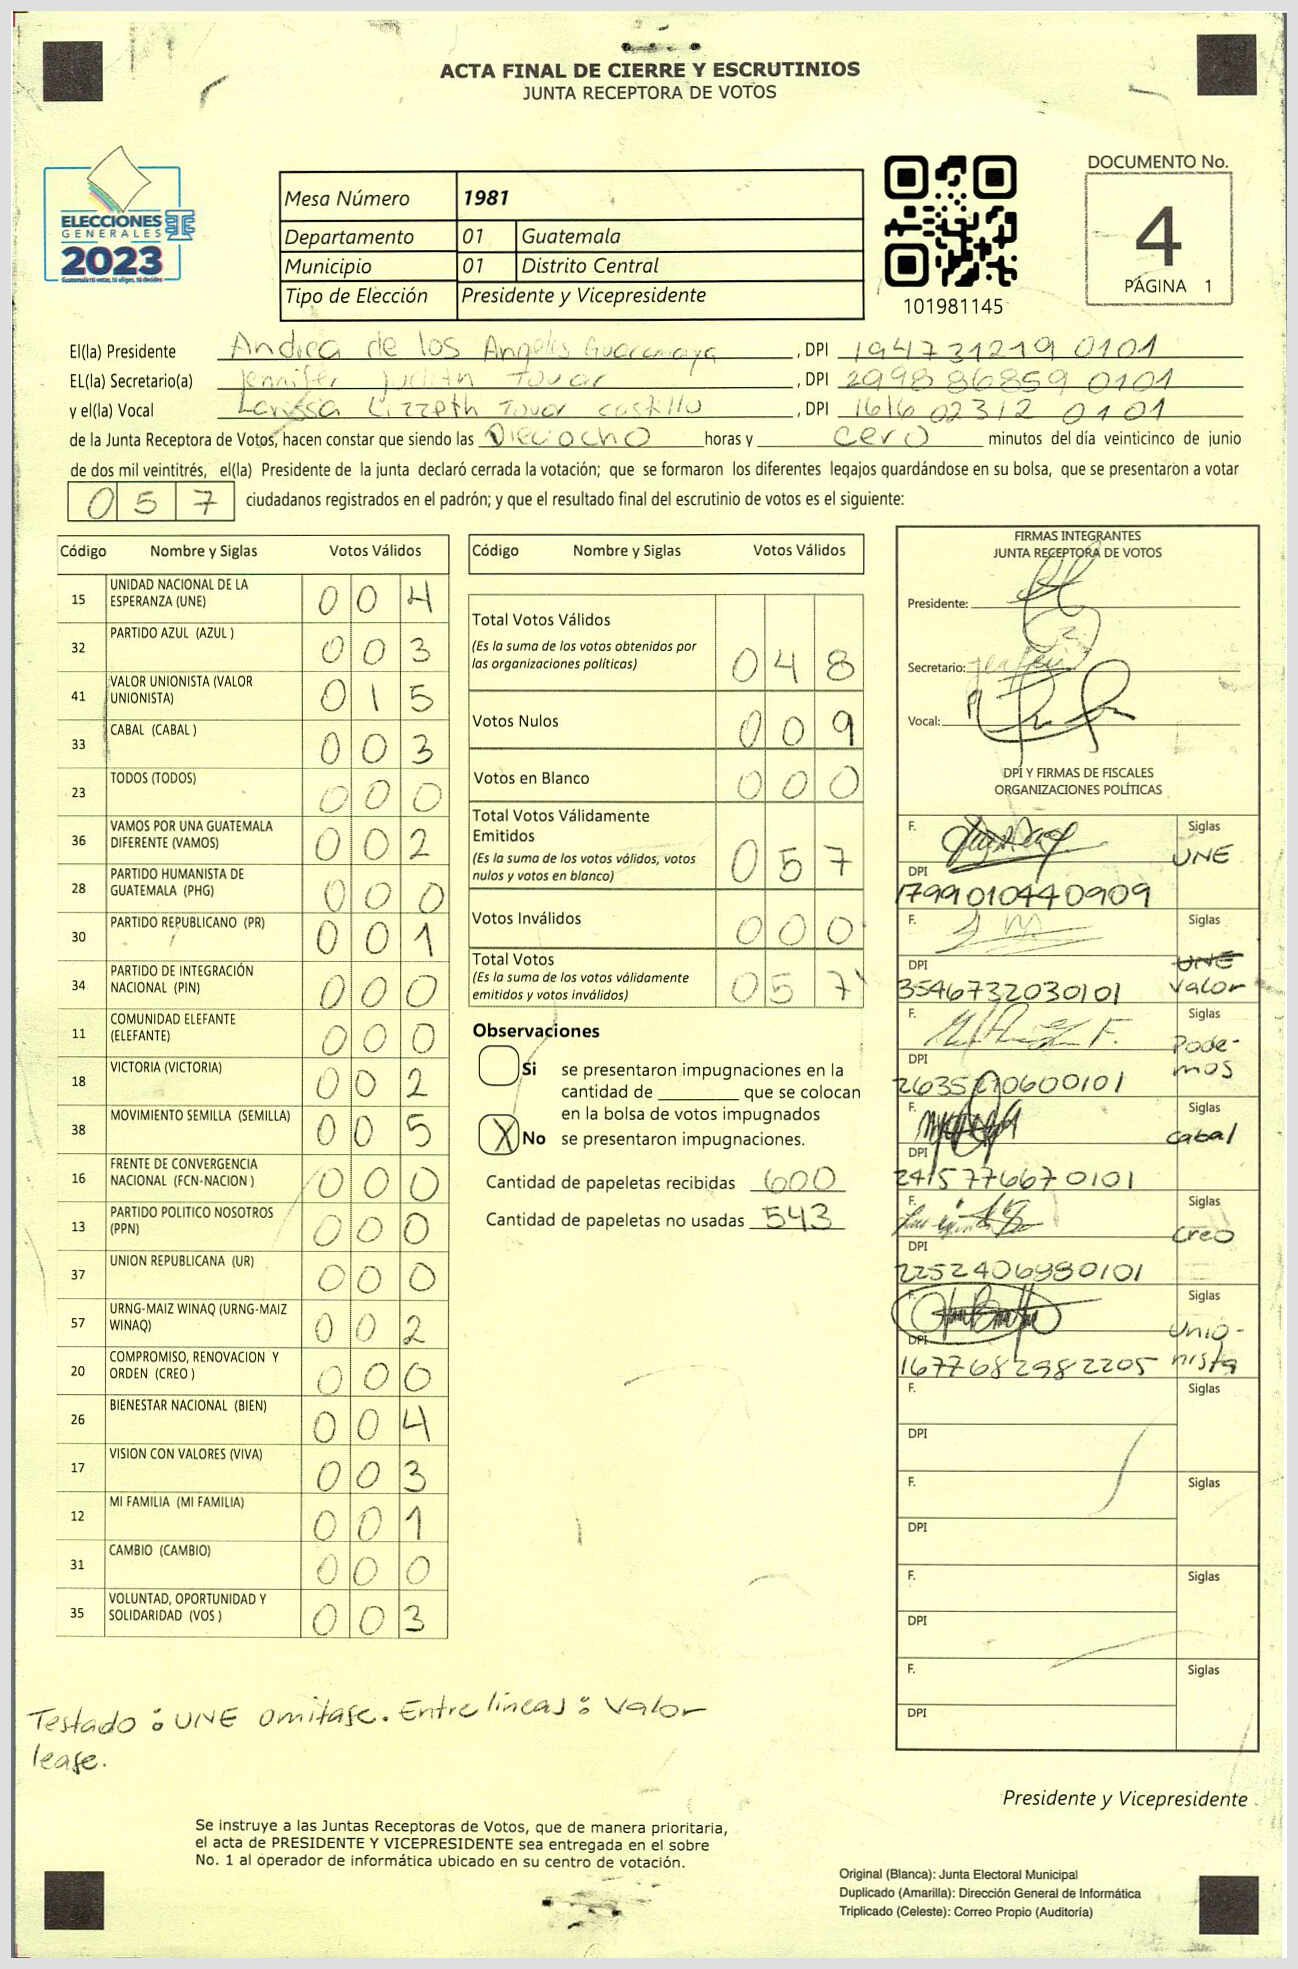 ACTA FINAL DE CIERRE Y ESCRUTINIOS
JUNTA RECEPTORA DE VOTOS
ELECCIONES
GENERALES
2023
Guatemala tú votas, tú eliges, tú decides
Mesa Número 1981
Departamento 01 Guatemala
Municipio 01 Distrito Central
Tipo de Elección Presidente y Vicepresidente
101981145
DOCUMENTO No.
4
PÁGINA 1
El(la) Presidente Andrea de los Angeles Guaramaya, DPI 194731219 0101
EL(la) Secretario(a) Jennifer Judith Tovar, DPI 299886859 0101
y el(la) Vocal Larissa Lizzeth Tovar castillo, DPI 1616 02312 0101
de la Junta Receptora de Votos, hacen constar que siendo las Dieciocho horas y cero minutos del día veinticinco de junio
de dos mil veintitrés, el(la) Presidente de la junta declaró cerrada la votación; que se formaron los diferentes legajos quardándose en su bolsa, que se presentaron a votar
057 ciudadanos registrados en el padrón; y que el resultado final del escrutinio de votos es el siguiente:
Código Nombre y Siglas Votos Válidos
15 UNIDAD NACIONAL DE LA ESPERANZA (UNE) 004
32 PARTIDO AZUL (AZUL ) 003
41 VALOR UNIONISTA (VALOR UNIONISTA) 015
33 CABAL (CABAL ) 003
23 TODOS (TODOS) 000
36 VAMOS POR UNA GUATEMALA DIFERENTE (VAMOS) 002
28 PARTIDO HUMANISTA DE GUATEMALA (PHG) 000
30 PARTIDO REPUBLICANO (PR) 001
34 PARTIDO DE INTEGRACIÓN NACIONAL (PIN) 000
11 COMUNIDAD ELEFANTE (ELEFANTE) 000
18 VICTORIA (VICTORIA) 002
38 MOVIMIENTO SEMILLA (SEMILLA) 005
16 FRENTE DE CONVERGENCIA NACIONAL (FCN-NACION ) 000
13 PARTIDO POLITICO NOSOTROS (PPN) 000
37 UNION REPUBLICANA (UR) 000
57 URNG-MAIZ WINAQ (URNG-MAIZ WINAQ) 002
20 COMPROMISO, RENOVACION Y ORDEN (CREO ) 000
26 BIENESTAR NACIONAL (BIEN) 004
17 VISION CON VALORES (VIVA) 003
12 MI FAMILIA (MI FAMILIA) 001
31 CAMBIO (CAMBIO) 000
35 VOLUNTAD, OPORTUNIDAD Y SOLIDARIDAD (VOS ) 003
Código Nombre y Siglas Votos Válidos
Total Votos Válidos 048
(Es la suma de los votos obtenidos por
las organizaciones políticas)
Votos Nulos 009
Votos en Blanco 000
Total Votos Válidamente
Emitidos 057
(Es la suma de los votos válidos, votos
nulos y votos en blanco)
Votos Inválidos 000
Total Votos 057
(Es la suma de los votos válidamente
emitidos y votos inválidos)
Observaciones
Si se presentaron impugnaciones en la
cantidad de ________ que se colocan
en la bolsa de votos impugnados
X No se presentaron impugnaciones.
Cantidad de papeletas recibidas 600
Cantidad de papeletas no usadas 543
FIRMAS INTEGRANTES
JUNTA RECEPTORA DE VOTOS
Presidente:
Secretario:
Vocal:
DPI Y FIRMAS DE FISCALES
ORGANIZACIONES POLÍTICAS
F. Siglas UNE
DPI 1799010440909
F. Siglas UNE Valor
DPI 3546732030101
F. Siglas Pode-
mos
DPI
F. Siglas cabal
DPI 2415776670101
F. Siglas Creo
DPI 2252406980101
F. Siglas Unio-
nista
DPI 1677682982205
F. Siglas
DPI
F. Siglas
DPI
F. Siglas
DPI
F. Siglas
DPI
Testado : UNE omitase. Entre líneas : Valor
lease.
Presidente y Vicepresidente
Se instruye a las Juntas Receptoras de Votos, que de manera prioritaria,
el acta de PRESIDENTE Y VICEPRESIDENTE sea entregada en el sobre
No. 1 al operador de informática ubicado en su centro de votación.
Original (Blanca): Junta Electoral Municipal
Duplicado (Amarilla): Dirección General de Informática
Triplicado (Celeste): Correo Propio (Auditoría)